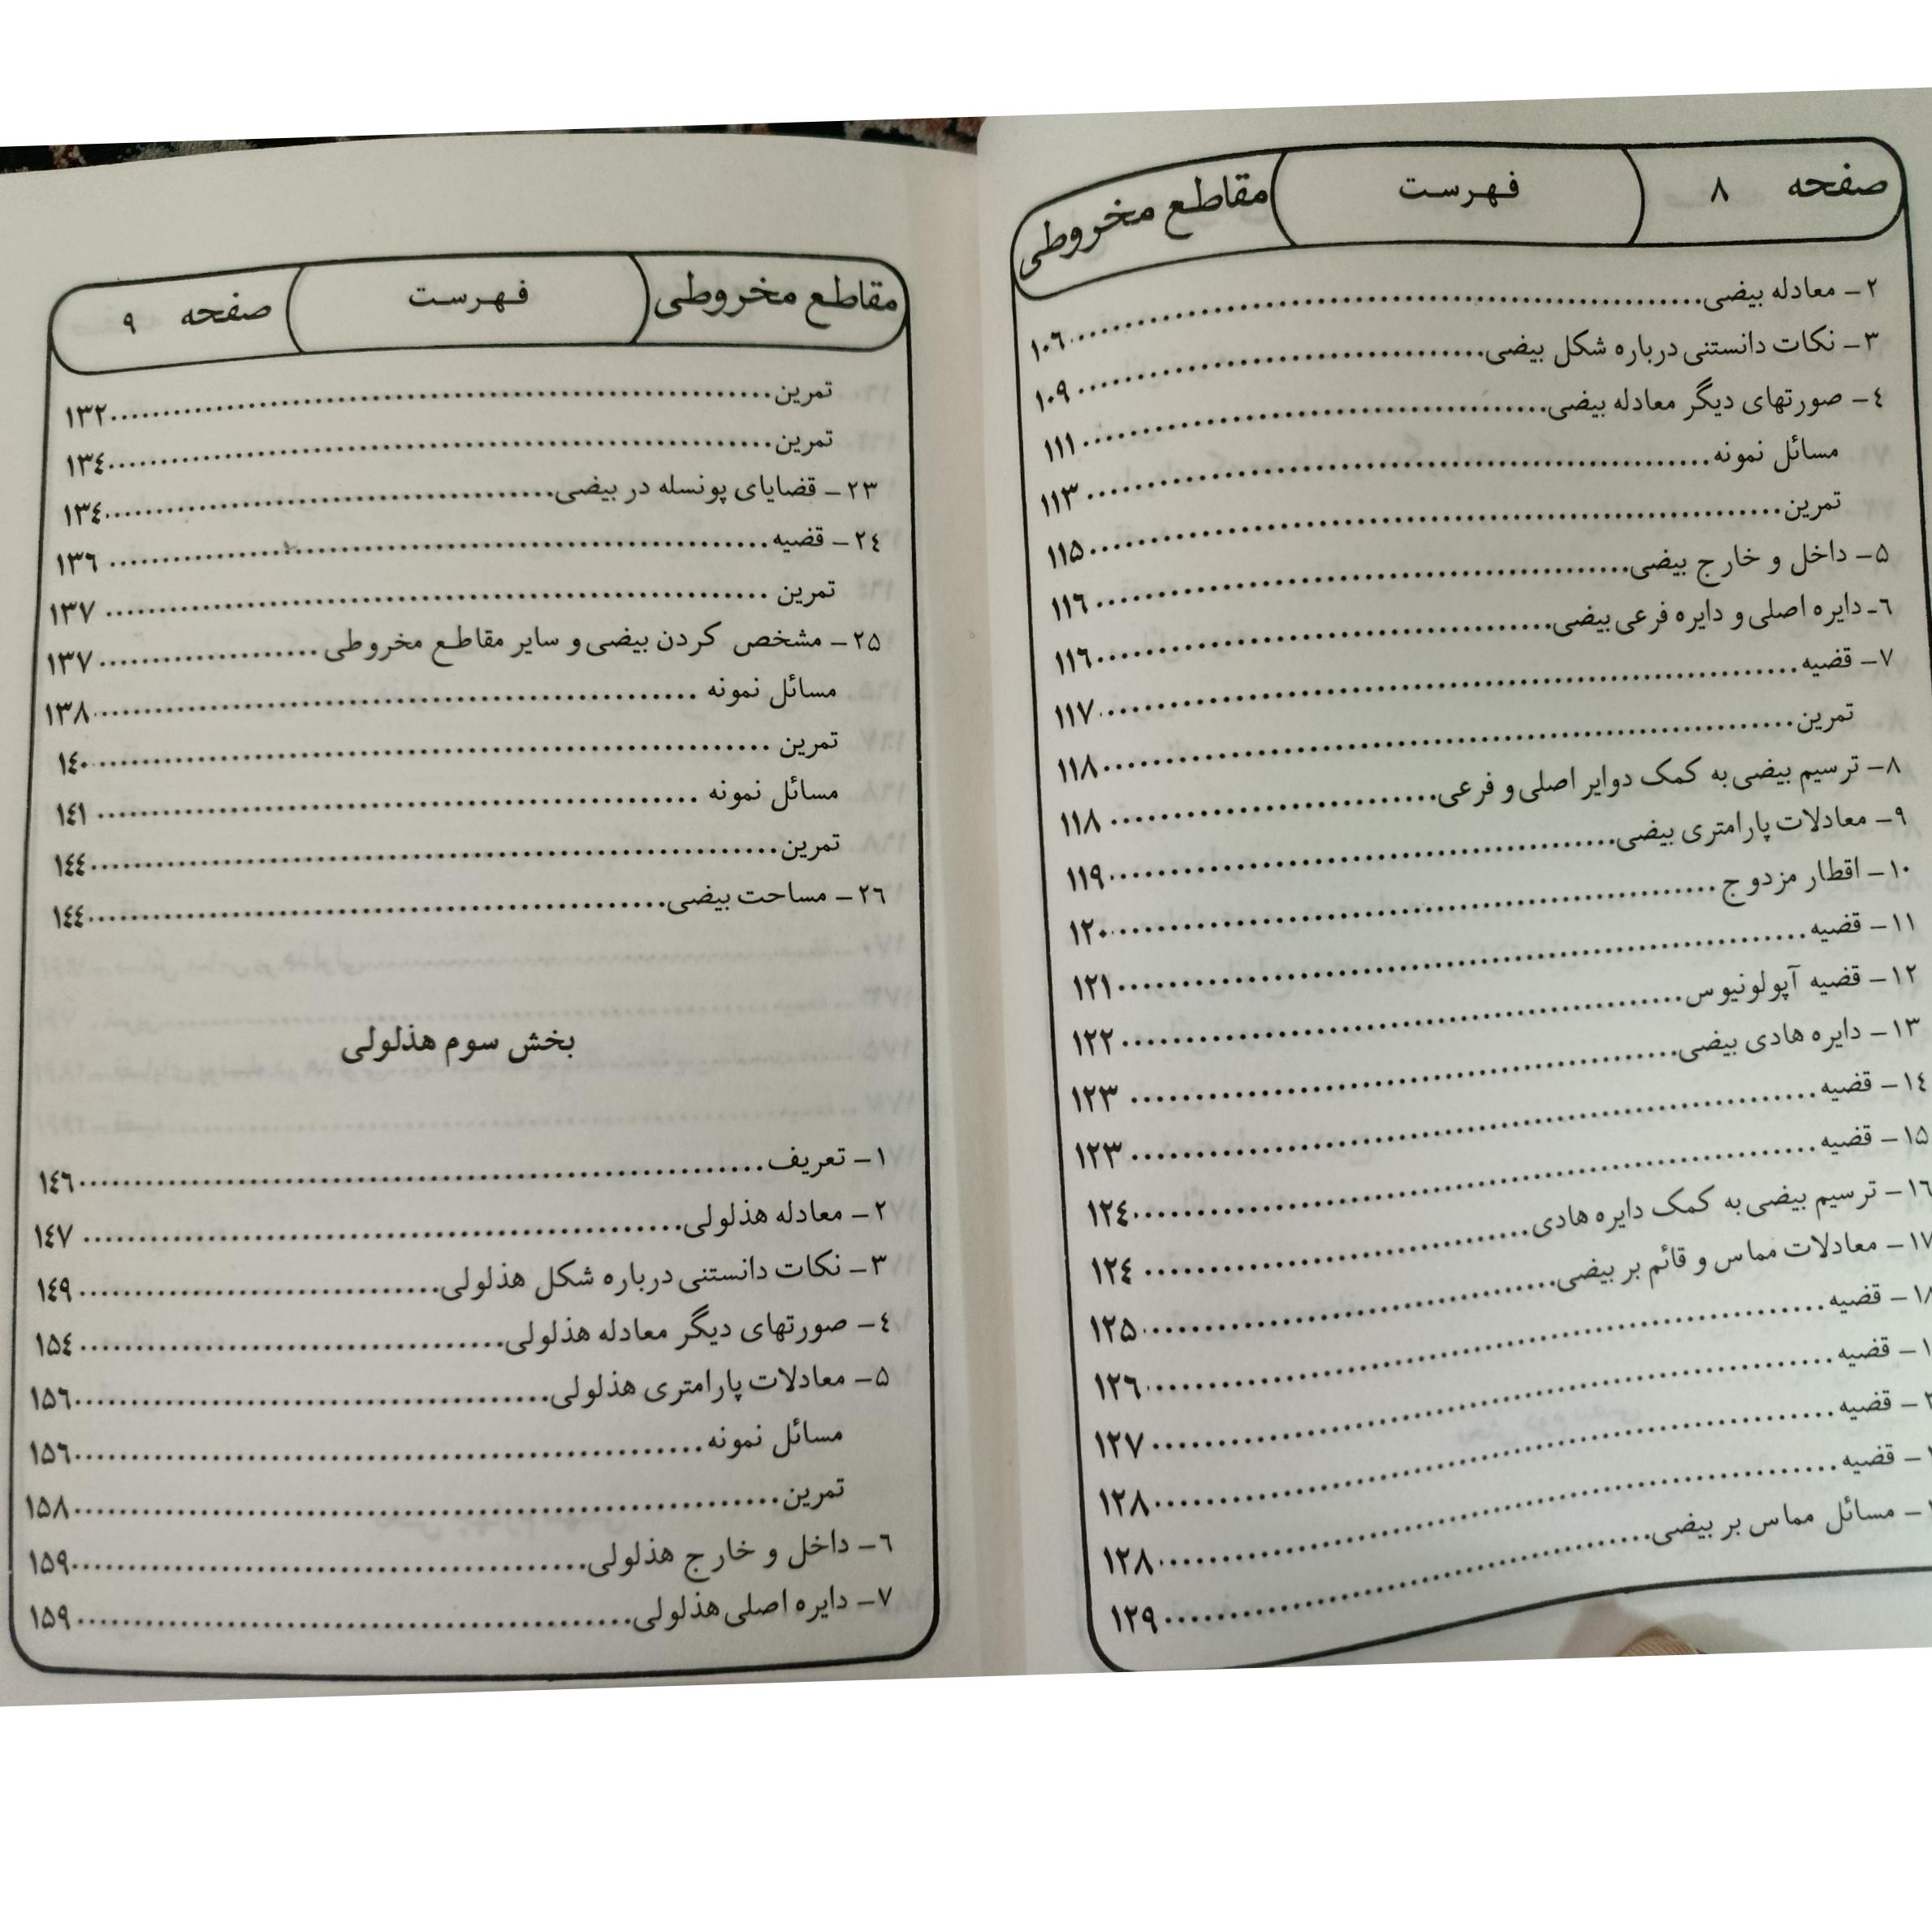 صفحه ۸ فهرست مقاطع مخروطی
۲ـ معادله بیضی................۱۰۶
۳ـ نکات دانستنی درباره شکل بیضی................۱۰۹
٤ـ صورتهای دیگر معادله بیضی................۱۱۱
مسائل نمونه................۱۱۳
تمرین................۱۱۵
۵ـ داخل و خارج بیضی................۱۱٦
٦ـ دایره اصلی و دایره فرعی بیضی................۱۱٦
۷ـ قضیه................۱۱۷
تمرین................۱۱۸
۸ـ ترسیم بیضی به کمک دوایر اصلی و فرعی................۱۱۸
۹ـ معادلات پارامتری بیضی................۱۱۹
۱۰ـ اقطار مزدوج................۱۲۰
۱۱ـ قضیه................۱۲۱
۱۲ـ قضیه آپولونیوس................۱۲۲
۱۳ـ دایره هادی بیضی................۱۲۳
۱٤ـ قضیه................۱۲۳
۱۵ـ قضیه................۱۲٤
۱٦ـ ترسیم بیضی به کمک دایره هادی................۱۲٤
۱۷ـ معادلات مماس و قائم بر بیضی................۱۲۵
۱۸ـ قضیه................۱۲٦
ـ قضیه................۱۲۷
ـ قضیه................۱۲۸
ـ قضیه................۱۲۸
ـ مسائل مماس بر بیضی................۱۲۹
مقاطع مخروطی فهرست صفحه ۹
تمرین................۱۳۲
تمرین................۱۳٤
۲۳ـ قضایای پونسله در بیضی................۱۳٤
۲٤ـ قضیه................۱۳٦
تمرین................۱۳۷
۲۵ـ مشخص کردن بیضی و سایر مقاطع مخروطی................۱۳۷
مسائل نمونه................۱۳۸
تمرین................۱٤۰
مسائل نمونه................۱٤۱
تمرین................۱٤٤
۲٦ـ مساحت بیضی................۱٤٤
بخش سوم هذلولی
۱ـ تعریف................۱٤٦
۲ـ معادله هذلولی................۱٤۷
۳ـ نکات دانستنی درباره شکل هذلولی................۱٤۹
٤ـ صورتهای دیگر معادله هذلولی................۱۵٤
۵ـ معادلات پارامتری هذلولی................۱۵٦
مسائل نمونه................۱۵٦
تمرین................۱۵۸
٦ـ داخل و خارج هذلولی................۱۵۹
۷ـ دایره اصلی هذلولی................۱۵۹